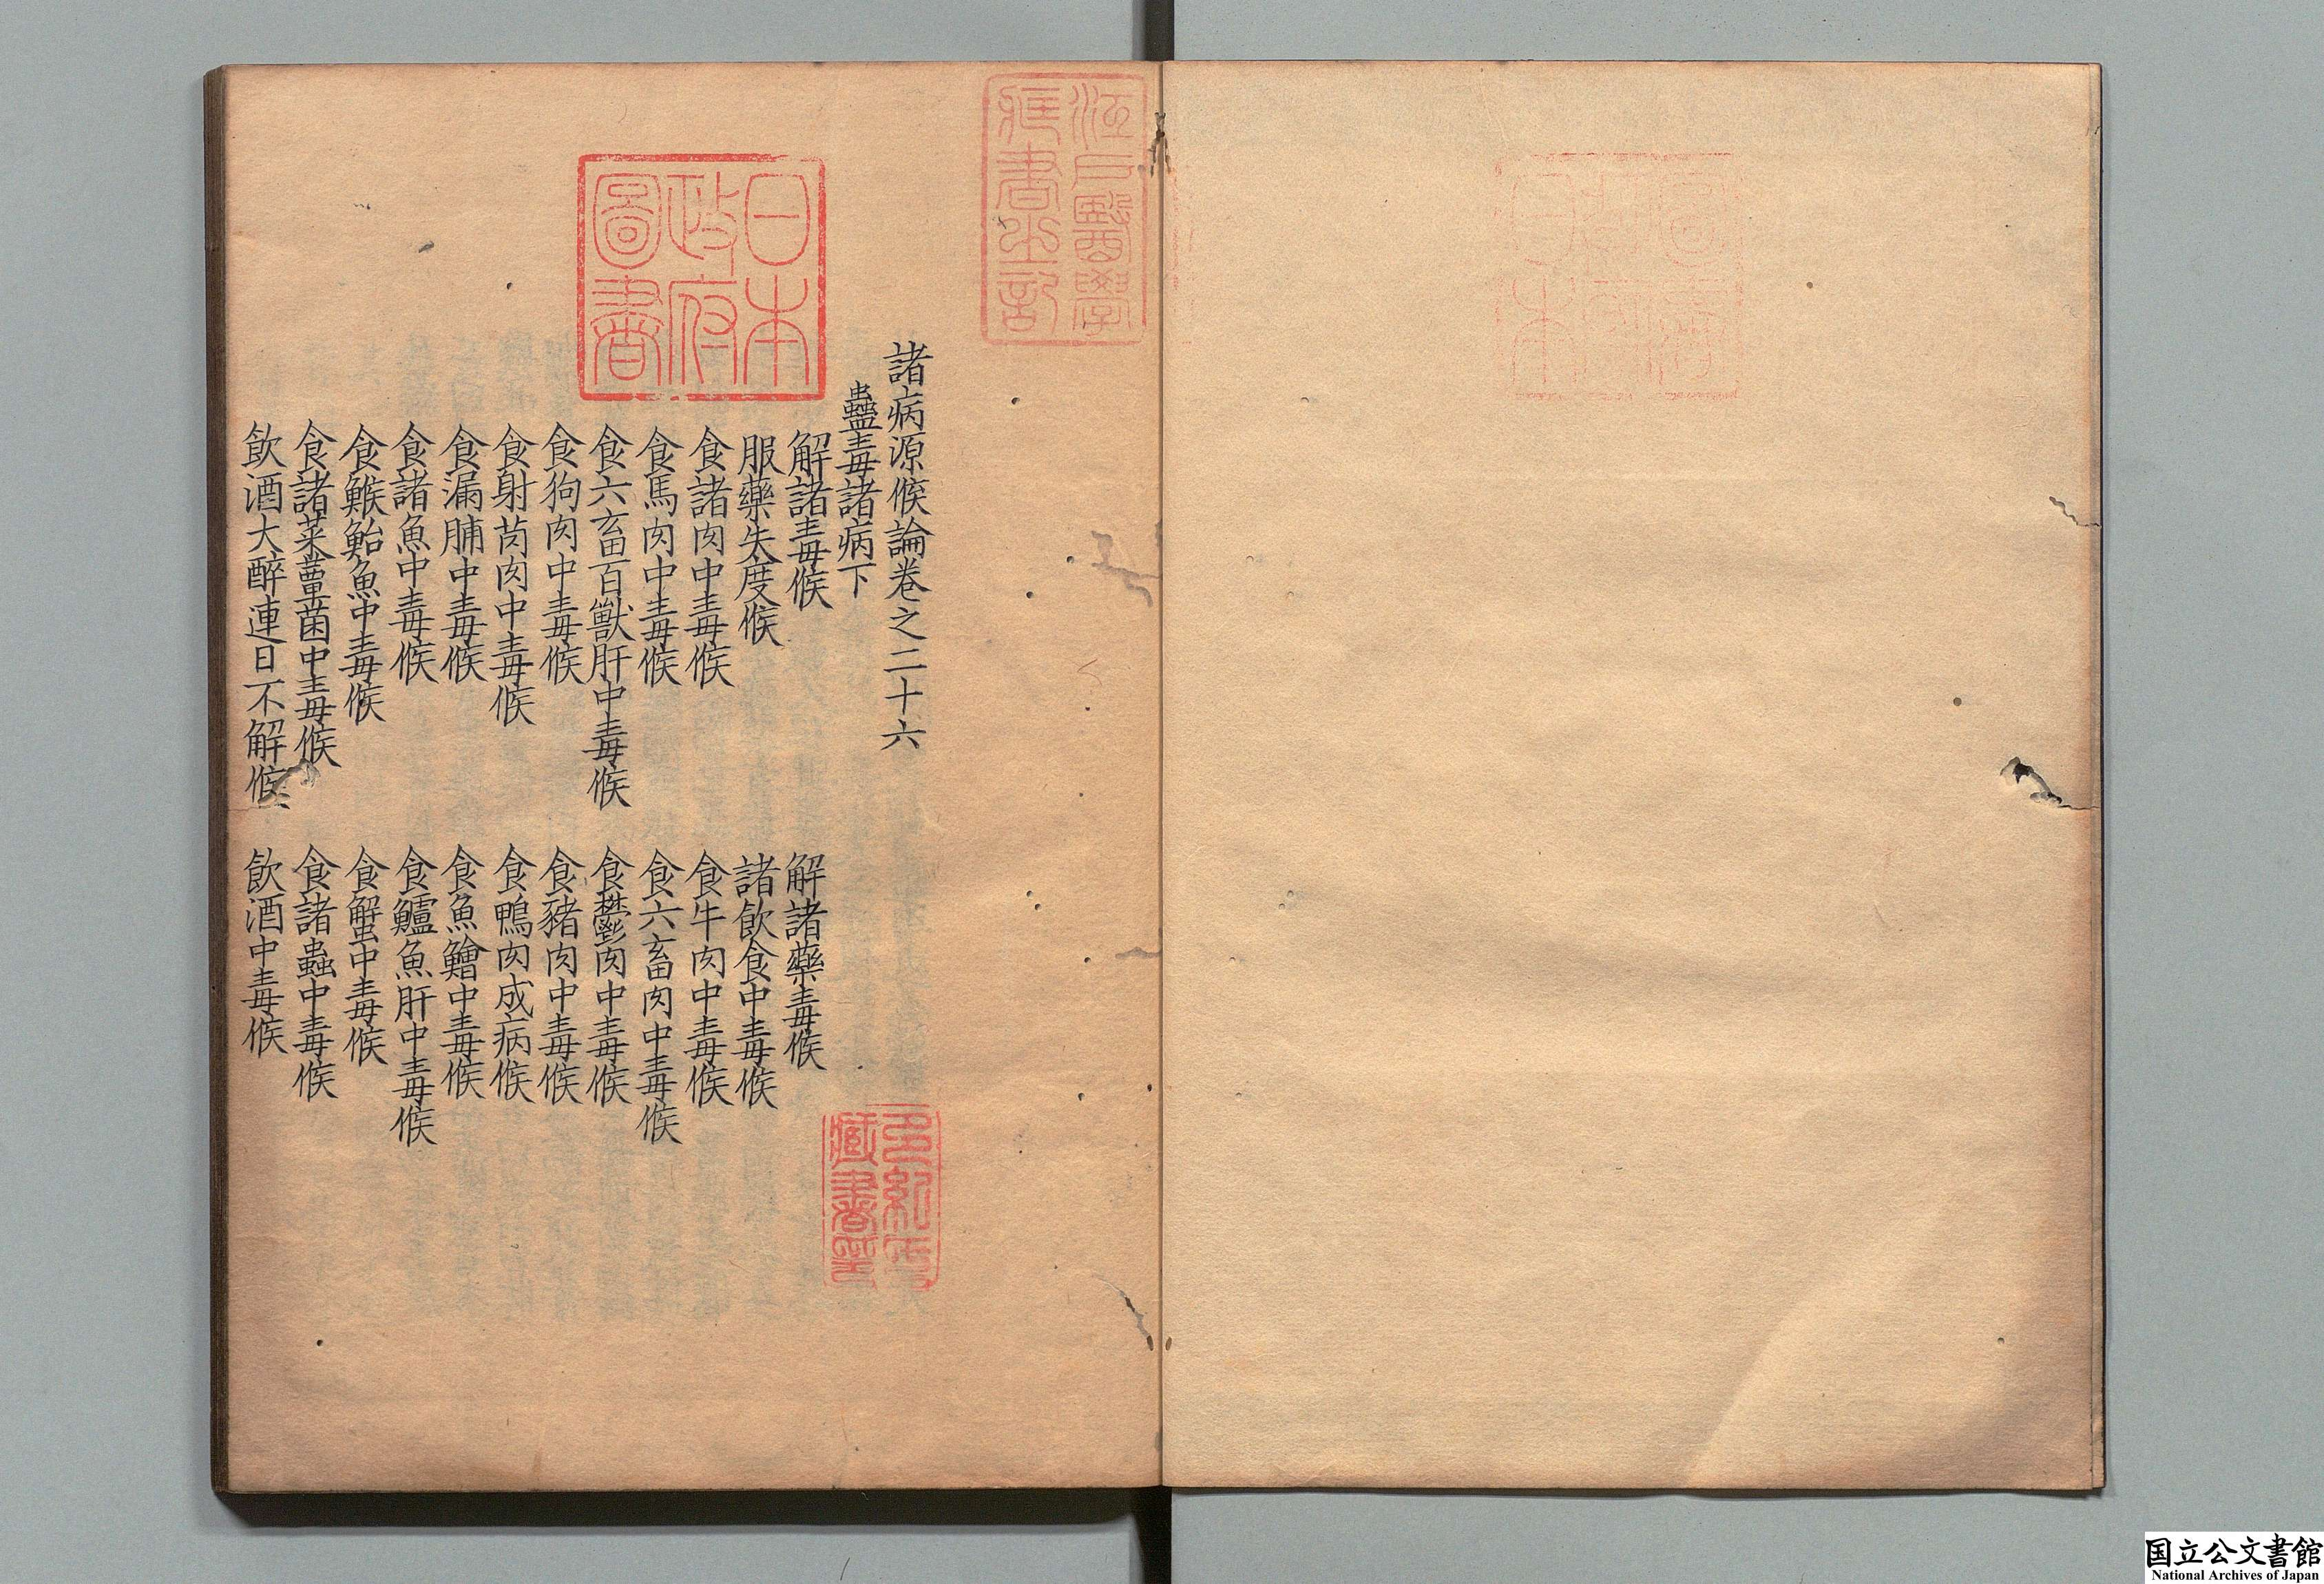 諸病源候論卷之二十六
蠱毒諸病下
解諸毒候
解諸藥毒候
服藥失度候
諸飲食中毒候
食諸肉中毒候
食牛肉中毒候
食馬肉中毒候
食六畜肉中毒候
食六畜百獸肝中毒候
食鬱肉中毒候
食狗肉中毒候
食豬肉中毒候
食射茵肉中毒候
食鴨肉成病候
食漏脯中毒候
食魚鱠中毒候
食諸魚中毒候
食鱸魚肝中毒候
食鯸鮐魚中毒候
食蟹中毒候
食諸菜蕈菌中毒候
食諸蟲中毒候
飲酒大醉連日不解候
飲酒中毒候
江戶醫學
藏書之記
日本
政府
圖書
多紀氏
藏書印
国立公文書館
National Archives of Japan